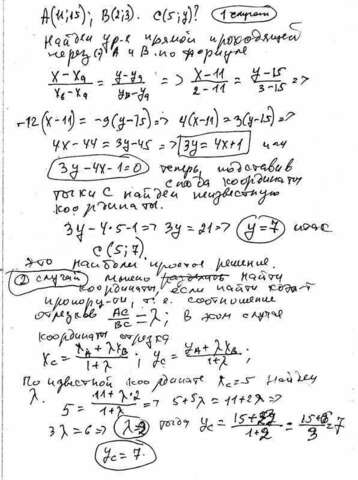 A(11;15); B(2;3). C(5;y)? 1 случай
Найдём ур-е прямой проходящей
через (.) A и B по формуле
x-xₐ/x_в-xₐ = y-yₐ/y_в-yₐ => x-11/2-11 = y-15/3-15 =>
-12(x-11) = -9(y-15) => 4(x-11)=3(y-15) =>
4x-44=3y-45 => 3y=4x+1 или
3y-4x-1=0 теперь, подставив
сюда координаты
точки C найдём неизвестную
координаты.
3y-4·5-1 => 3y=21 => y=7
C(5;7)
Это наиболее простое решение.
2 случай можно найти
координаты, если найти
т.е. соотношение
отрезков AC/BC = λ; в этом случае
координаты отрезка
x_C = x_A+λx_B/1+λ ; y_C = y_A+λy_B/1+λ ;
По известной координате x_C=5 найдём
λ.
5 = 11+λ·2/1+λ => 5+5λ=11+2λ =>
3λ=6 => λ=2 тогда y_C = 15+2·3/1+2 = 15+6/3 = 7
y_C=7.